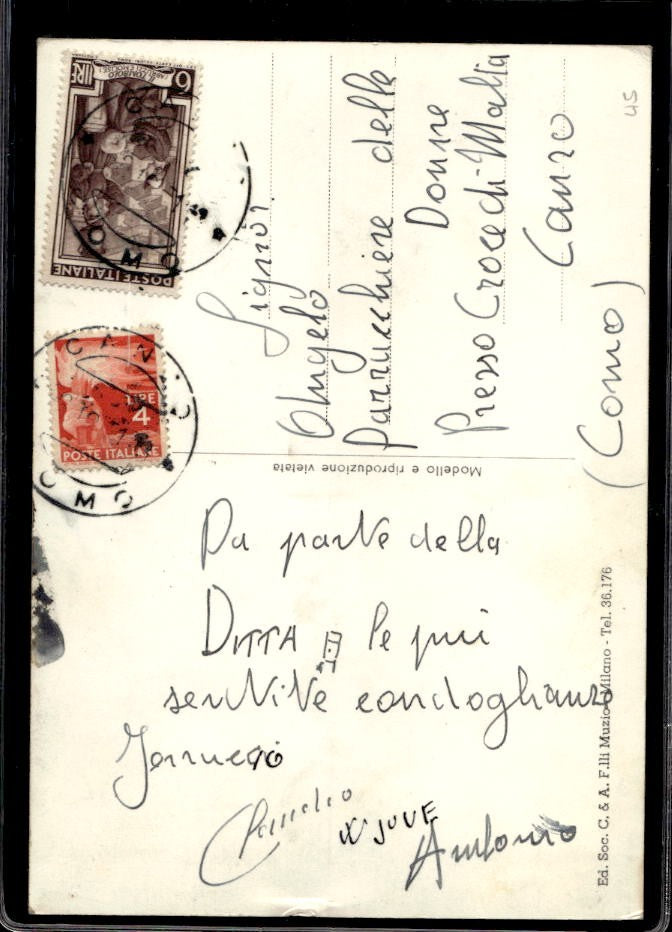 6 LIRE
IL TOMBOLO
POSTE ITALIANE
COMO
CANZO
LIRE
4
POSTE ITALIANE
COMO
Signor.
Angelo
Parrucchiere delle
Donne
Presso Croce di Malta
Canzo
(Como)
US
Modello e riproduzione vietata
Da parte della
DITTA le piu
sentite condoglianze
Ferruccio
W JUVE
Antonio
Ed. Soc. C. & A. F.lli Muzio - Milano - Tel. 36.176